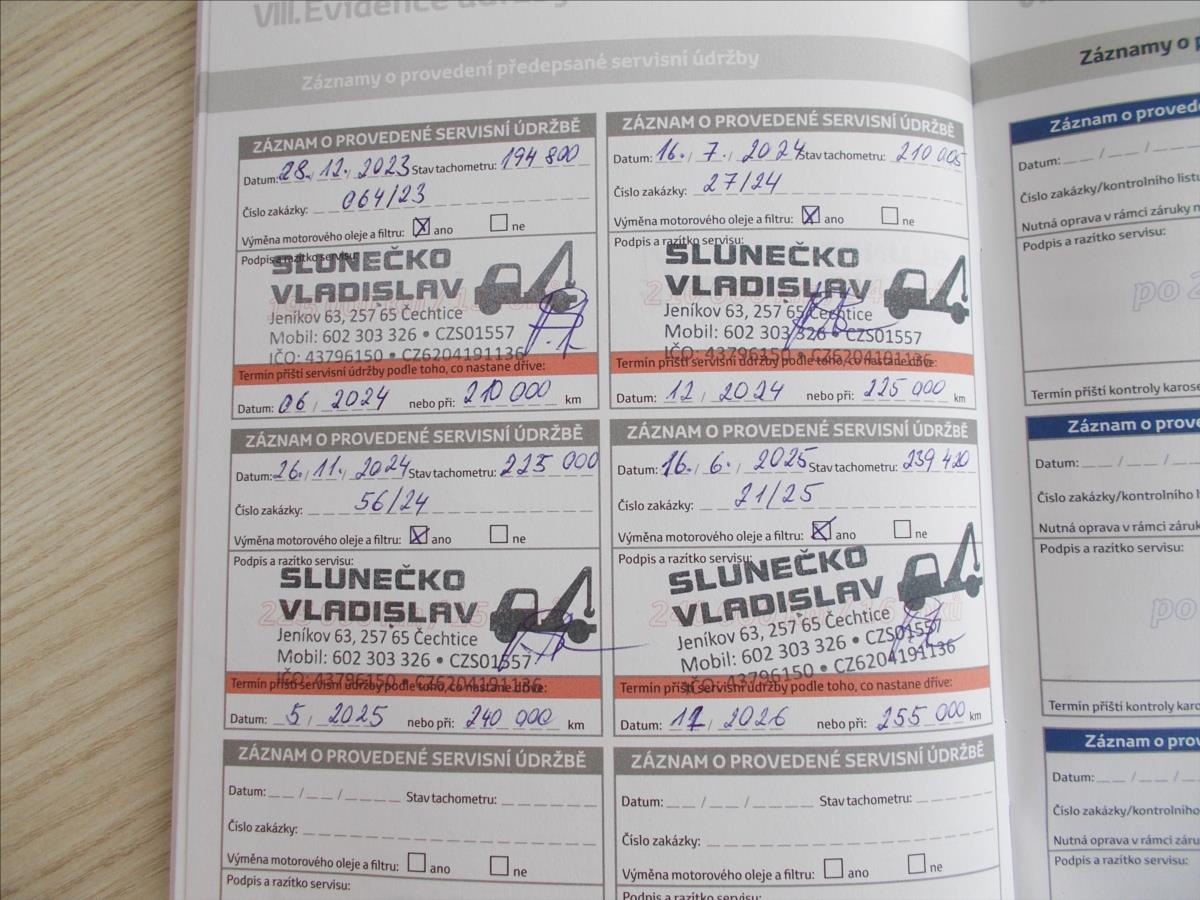 VIII. Evidence údržby
Záznamy o provedení předepsané servisní údržby
ZÁZNAM O PROVEDENÉ SERVISNÍ ÚDRŽBĚ
Datum: 28. 12. 2023 Stav tachometru: 194 800
Číslo zakázky: 064/23
Výměna motorového oleje a filtru: X ano ne
Podpis a razítko servisu:
SLUNEČKO
VLADISLAV
Jeníkov 63, 257 65 Čechtice
Mobil: 602 303 326 • CZS01557
IČO: 43796150 • CZ6204191136
Termín příští servisní údržby podle toho, co nastane dříve:
Datum: 06 / 2024 nebo při: 210 000 km
ZÁZNAM O PROVEDENÉ SERVISNÍ ÚDRŽBĚ
Datum: 16. 7. 2024 Stav tachometru: 210 005
Číslo zakázky: 27/24
Výměna motorového oleje a filtru: X ano ne
Podpis a razítko servisu:
SLUNEČKO
VLADISLAV
Jeníkov 63, 257 65 Čechtice
Mobil: 602 303 326 • CZS01557
IČO: 43796150 • CZ6204191136
Termín příští servisní údržby podle toho, co nastane dříve:
Datum: 12 / 2024 nebo při: 225 000 km
ZÁZNAM O PROVEDENÉ SERVISNÍ ÚDRŽBĚ
Datum: 26. 11. 2024 Stav tachometru: 225 000
Číslo zakázky: 56/24
Výměna motorového oleje a filtru: X ano ne
Podpis a razítko servisu:
SLUNEČKO
VLADISLAV
Jeníkov 63, 257 65 Čechtice
Mobil: 602 303 326 • CZS01557
IČO: 43796150
Termín příští servisní údržby podle toho, co nastane dříve:
Datum: 5 / 2025 nebo při: 240 000 km
ZÁZNAM O PROVEDENÉ SERVISNÍ ÚDRŽBĚ
Datum: 16. 6. 2025 Stav tachometru: 239 420
Číslo zakázky: 21/25
Výměna motorového oleje a filtru: X ano ne
Podpis a razítko servisu:
SLUNEČKO
VLADISLAV
Jeníkov 63, 257 65 Čechtice
Mobil: 602 303 326 • CZS01557
IČO: 43796150 • CZ6204191136
Termín příští servisní údržby podle toho, co nastane dříve:
Datum: / 2026 nebo při: 255 000 km
ZÁZNAM O PROVEDENÉ SERVISNÍ ÚDRŽBĚ
Datum: / / Stav tachometru:
Číslo zakázky:
Výměna motorového oleje a filtru: ano ne
Podpis a razítko servisu:
ZÁZNAM O PROVEDENÉ SERVISNÍ ÚDRŽBĚ
Datum: / / Stav tachometru:
Číslo zakázky:
Výměna motorového oleje a filtru: ano ne
Podpis a razítko servisu:
Záznamy o
Záznam o proved
Datum: / /
Číslo zakázky/kontrolního listu
Nutná oprava v rámci záruky n
Podpis a razítko servisu:
po
Termín příští kontroly karose
Záznam o prove
Datum: / /
Číslo zakázky/kontrolního l
Nutná oprava v rámci záruk
Podpis a razítko servisu:
po
Termín příští kontroly karo
Záznam o prov
Datum: / /
Číslo zakázky/kontrolního
Nutná oprava v rámci záru
Podpis a razítko servisu: